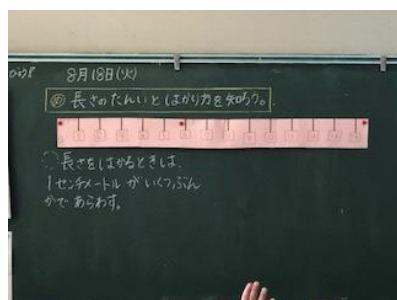 8月18日(火)
め 長さのたんいとはかり方を知ろう。
長さをはかるときは、
1センチメートルがいくつぶん
かであらわす。